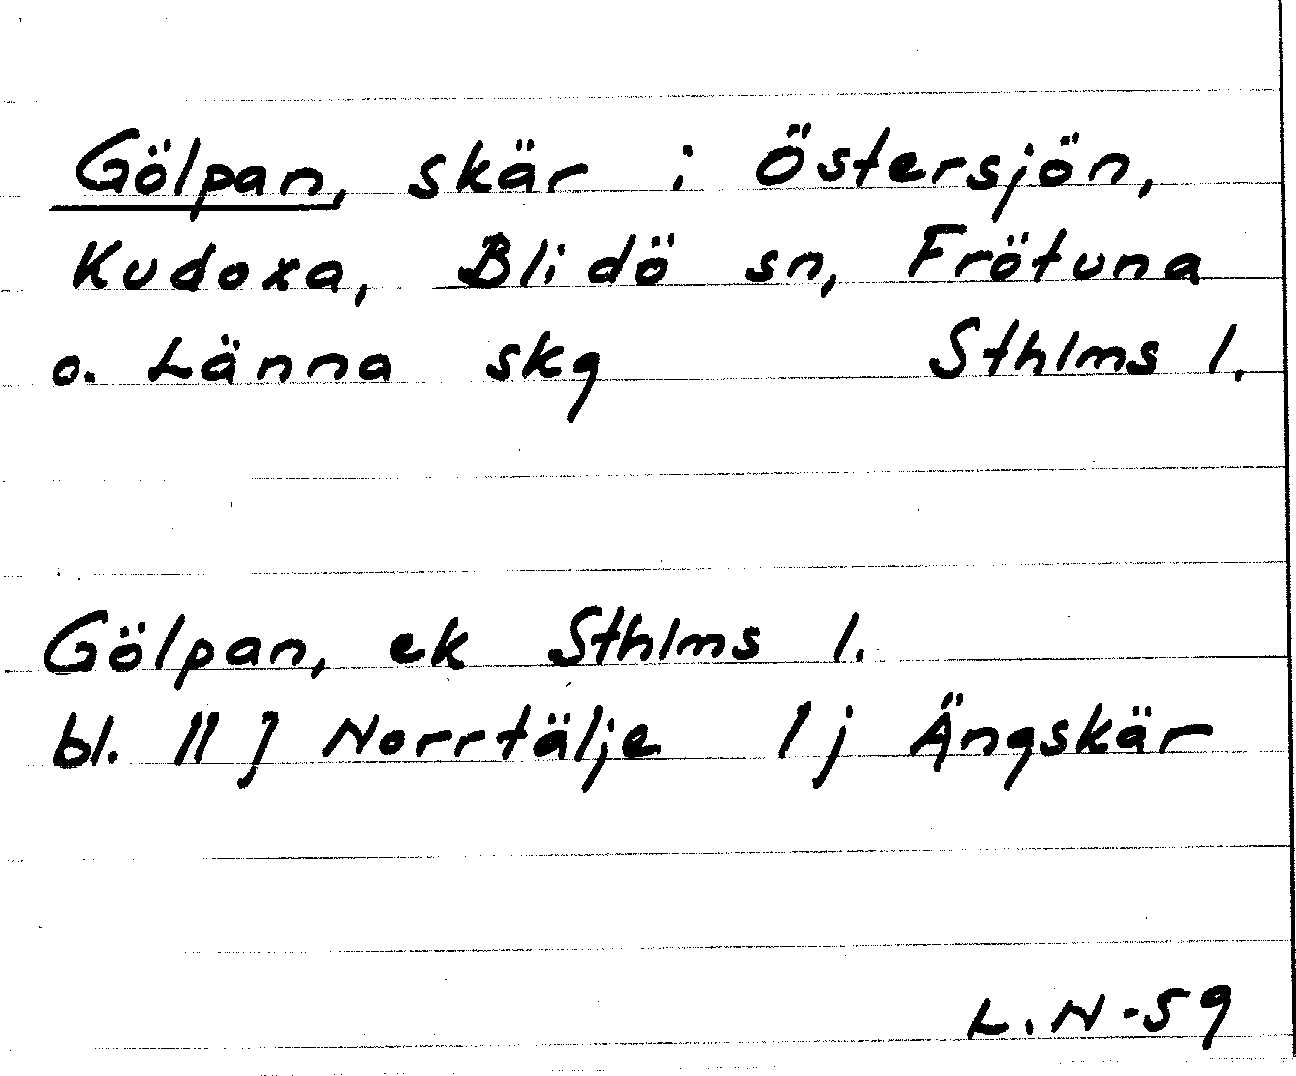 Gölpan, skär i Östersjön,
Kudoxa, Blidö sn, Frötuna
o. Länna skg Sthlms l.
Gölpan, ek Sthlms l.
bl. 11 J Norrtälje 1 j Ängskär
L.N-59